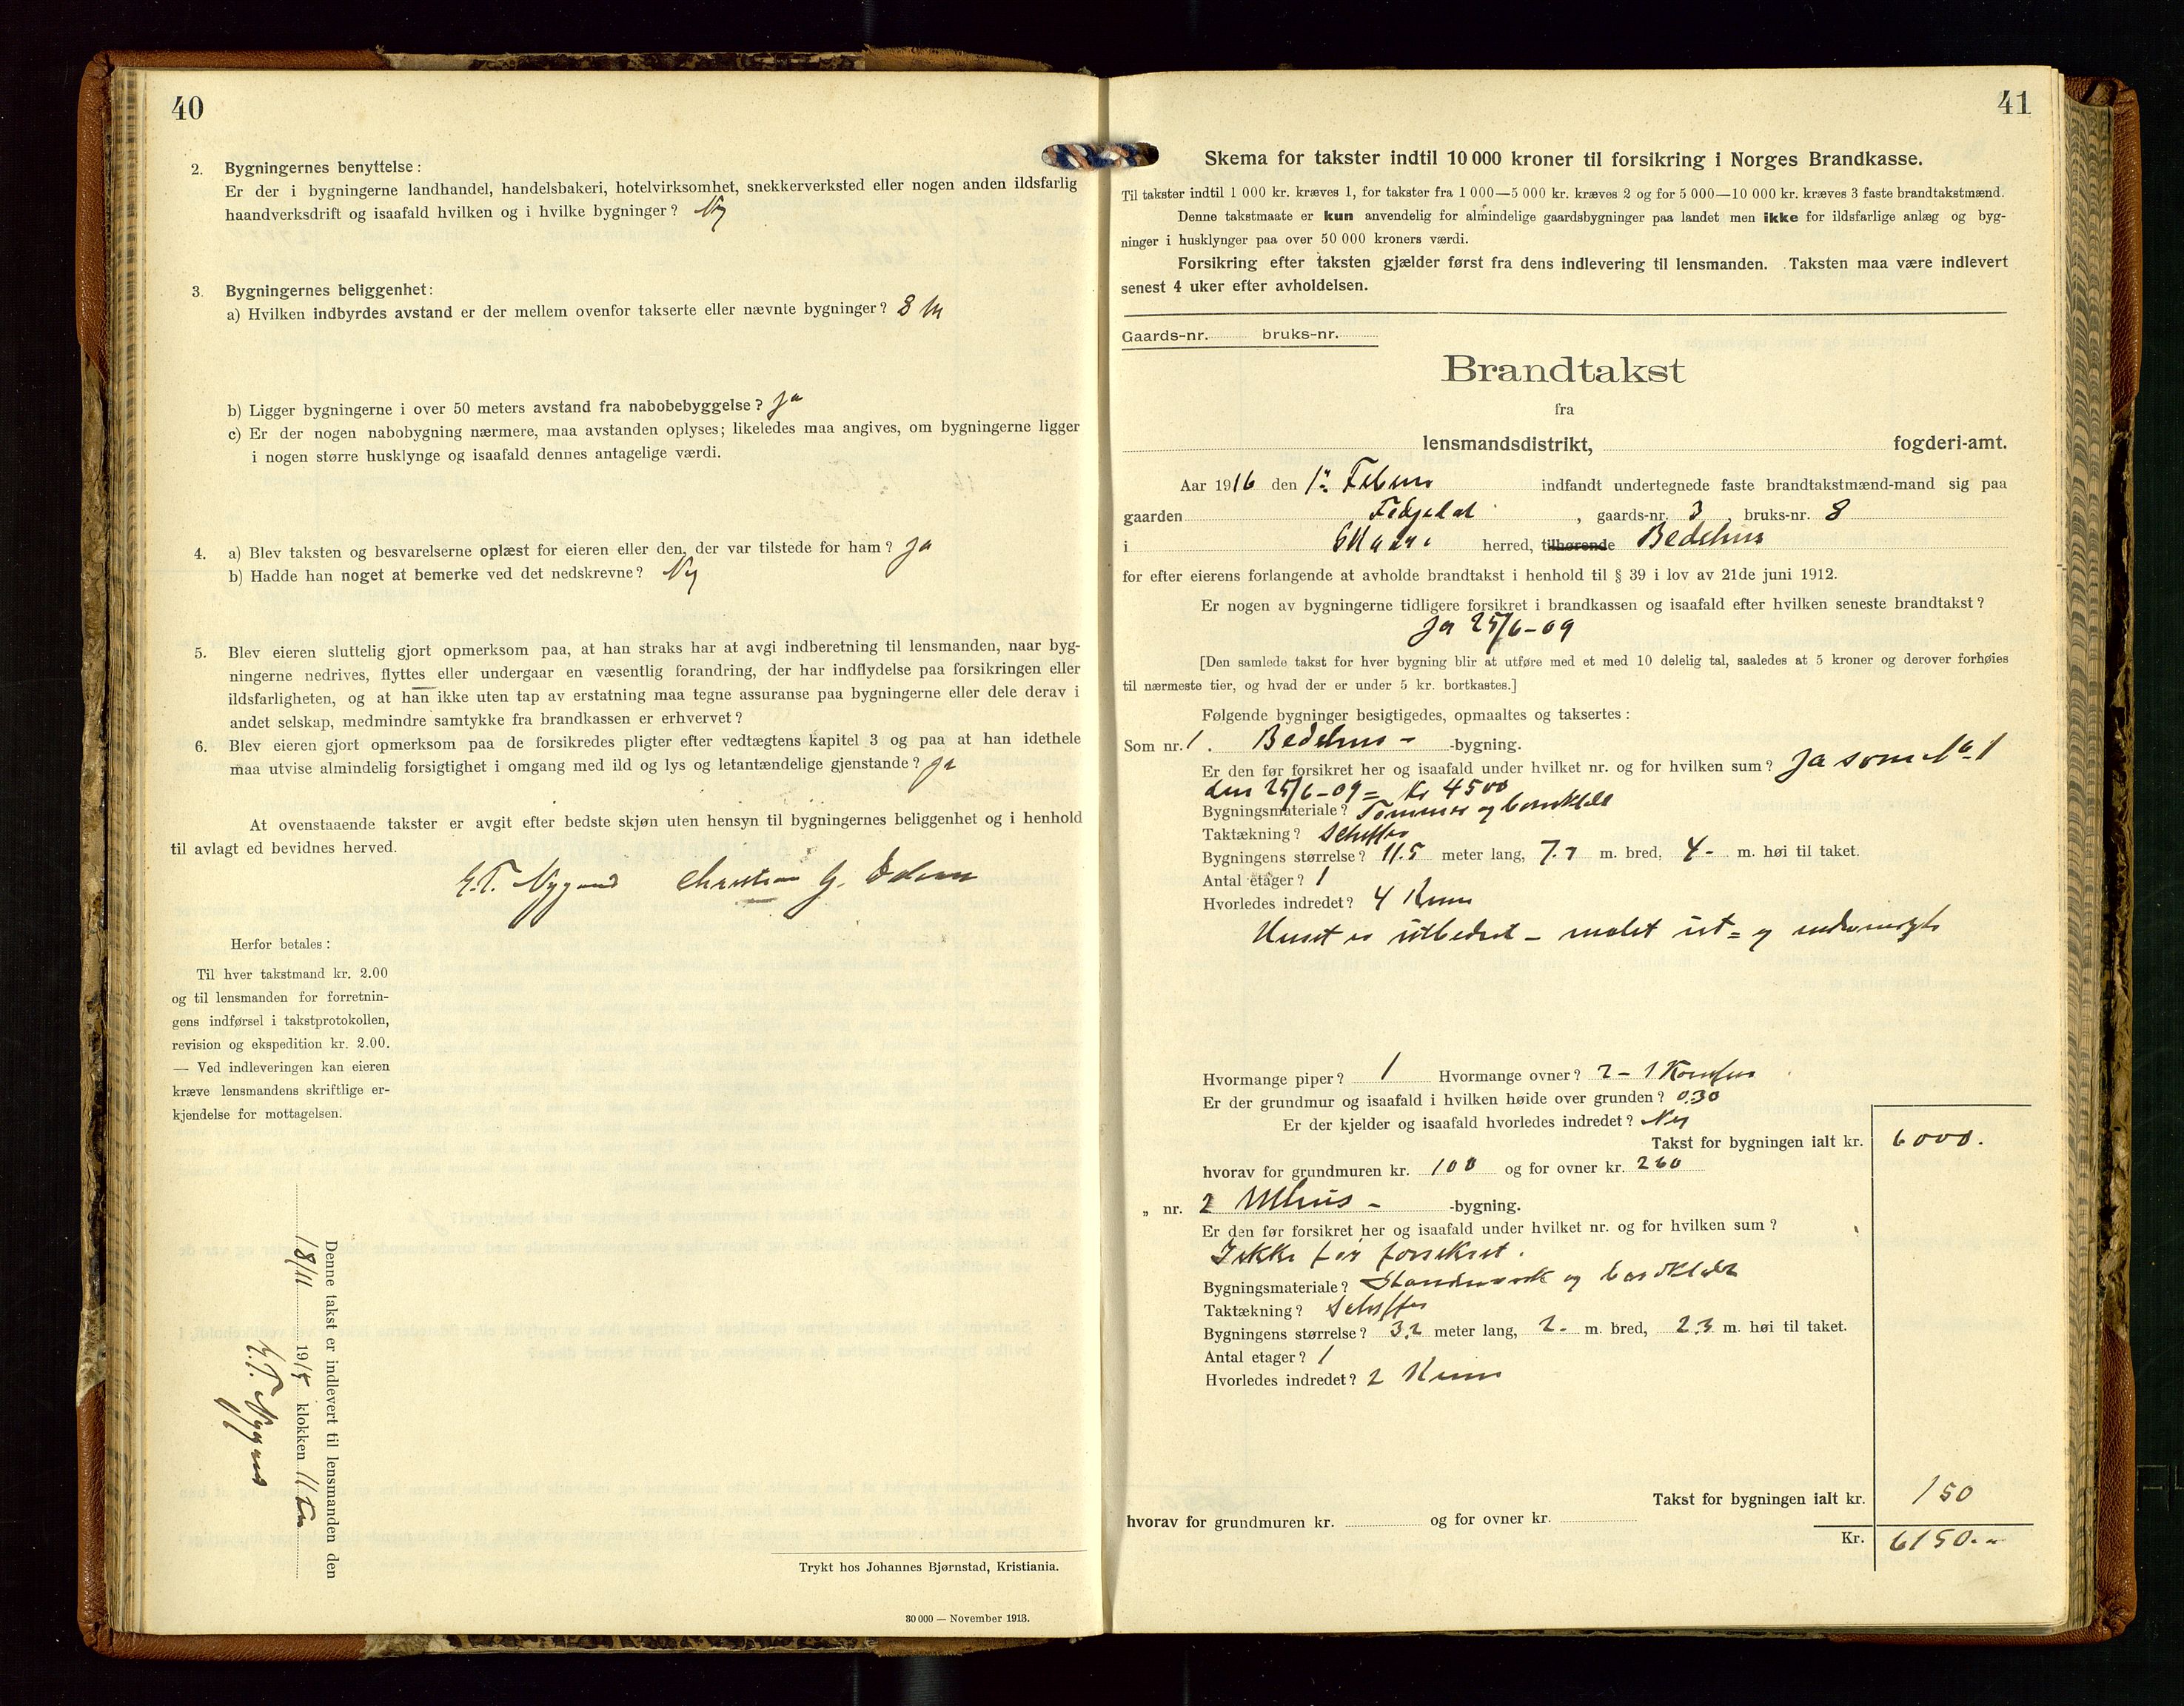 40
2. Bygningernes benyttelse:
Er der i bygningerne landhandel, handelsbakeri, hotelvirksomhet, snekkerverksted eller nogen anden ildsfarlig
haandverksdrift og isaafald hvilken og i hvilke bygninger? Nej
3. Bygningernes beliggenhet:
a) Hvilken indbyrdes avstand er der mellem ovenfor takserte eller nævnte bygninger? 8 m
b) Ligger bygningerne i over 50 meters avstand fra nabobebyggelse? ja
c) Er der nogen nabobygning nærmere, maa avstanden oplyses; likeledes maa angives, om bygningerne ligger
i nogen større husklynge og isaafald dennes antagelige værdi.
4. a) Blev taksten og besvarelserne oplæst for eieren eller den, der var tilstede for ham? ja
b) Hadde han noget at bemerke ved det nedskrevne? Nej
5. Blev eieren sluttelig gjort opmerksom paa, at han straks har at avgi indberetning til lensmanden, naar byg-
ningerne nedrives, flyttes eller undergaar en væsentlig forandring, der har indflydelse paa forsikringen eller
ildsfarligheten, og at han ikke uten tap av erstatning maa tegne assuranse paa bygningerne eller dele derav i
andet selskap, medmindre samtykke fra brandkassen er erhvervet?
6. Blev eieren gjort opmerksom paa de forsikredes pligter efter vedtægtens kapitel 3 og paa at han idethele
maa utvise almindelig forsigtighet i omgang med ild og lys og letantændelige gjenstande? ja
At ovenstaaende takster er avgit efter bedste skjøn uten hensyn til bygningernes beliggenhet og i henhold
til avlagt ed bevidnes herved.
E.T. Nygaard Christian G.
Herfor betales:
Til hver takstmand kr. 2.00
og til lensmanden for forretnin-
gens indførsel i takstprotokollen,
revision og ekspedition kr. 2.00.
— Ved indleveringen kan eieren
kræve lensmandens skriftlige er-
kjendelse for mottagelsen.
Denne takst er indlevert til lensmanden den
18/11 1915 klokken 11 fm
E.T. Nygaard
Trykt hos Johannes Bjørnstad, Kristiania.
30 000 — November 1913.
41
Skema for takster indtil 10 000 kroner til forsikring i Norges Brandkasse.
Til takster indtil 1 000 kr. kræves 1, for takster fra 1 000—5 000 kr. kræves 2 og for 5 000—10 000 kr. kræves 3 faste brandtakstmænd.
Denne takstmaate er kun anvendelig for almindelige gaardsbygninger paa landet men ikke for ildsfarlige anlæg og byg-
ninger i husklynger paa over 50 000 kroners værdi.
Forsikring efter taksten gjælder først fra dens indlevering til lensmanden. Taksten maa være indlevert
senest 4 uker efter avholdelsen.
Gaards-nr. bruks-nr.
Brandtakst
fra
lensmandsdistrikt, fogderi-amt.
Aar 1916 den 1ste Februar indfandt undertegnede faste brandtakstmænd-mand sig paa
gaarden , gaards-nr. 3 , bruks-nr. 8
i Skaare herred, tilhørende Bedehus
for efter eierens forlangende at avholde brandtakst i henhold til § 39 i lov av 21de juni 1912.
Er nogen av bygningerne tidligere forsikret i brandkassen og isaafald efter hvilken seneste brandtakst?
Ja 25/6-09
[Den samlede takst for hver bygning blir at utføre med et med 10 delelig tal, saaledes at 5 kroner og derover forhøies
til nærmeste tier, og hvad der er under 5 kr. bortkastes.]
Følgende bygninger besigtigedes, opmaaltes og taksertes:
Som nr. 1. Bedehus - -bygning.
Er den før forsikret her og isaafald under hvilket nr. og for hvilken sum? Ja som No 1
den 25/6-09 = Kr 4500
Bygningsmateriale? Tømmer og bordklædt
Taktækning? Skiffer
Bygningens størrelse? 11.5 meter lang, 7.7 m. bred, 4- m. høi til taket.
Antal etager? 1
Hvorledes indredet? 4 Rum
Huset er utbedret - malet ut= og indvendigt
Hvormange piper? 1 Hvormange ovner? 2 - 1 Komfur
Er der grundmur og isaafald i hvilken høide over grunden? 0.30
Er der kjelder og isaafald hvorledes indredet? Nej
Takst for bygningen ialt kr. 6000.
hvorav for grundmuren kr. 100 og for ovner kr. 260
„ nr. 2 Uthus - -bygning.
Er den før forsikret her og isaafald under hvilket nr. og for hvilken sum?
Ikke før forsikret.
Bygningsmateriale? Standerverk og bordklædt
Taktækning? Skiffer
Bygningens størrelse? 3.2 meter lang, 2.- m. bred, 2.3 m. høi til taket.
Antal etager? 1
Hvorledes indredet? 2 Rum
Takst for bygningen ialt kr. 150
hvorav for grundmuren kr. og for ovner kr.
Kr. 6150.-